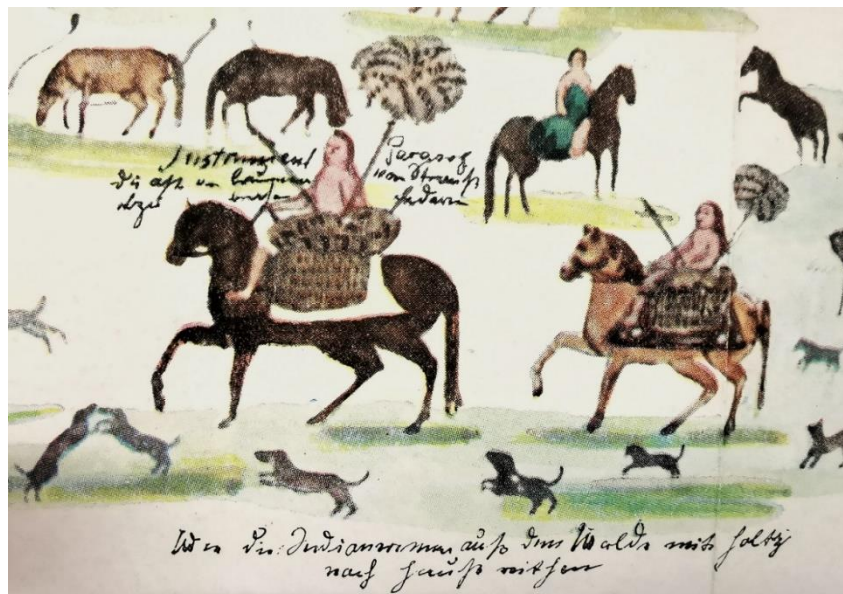 Instrument
die äst von bäumen
abzu brechen
Parasol
von Strauß
federn
Wie die Indianerinnen auß dem Walde mit holtz
nach hauß reithen